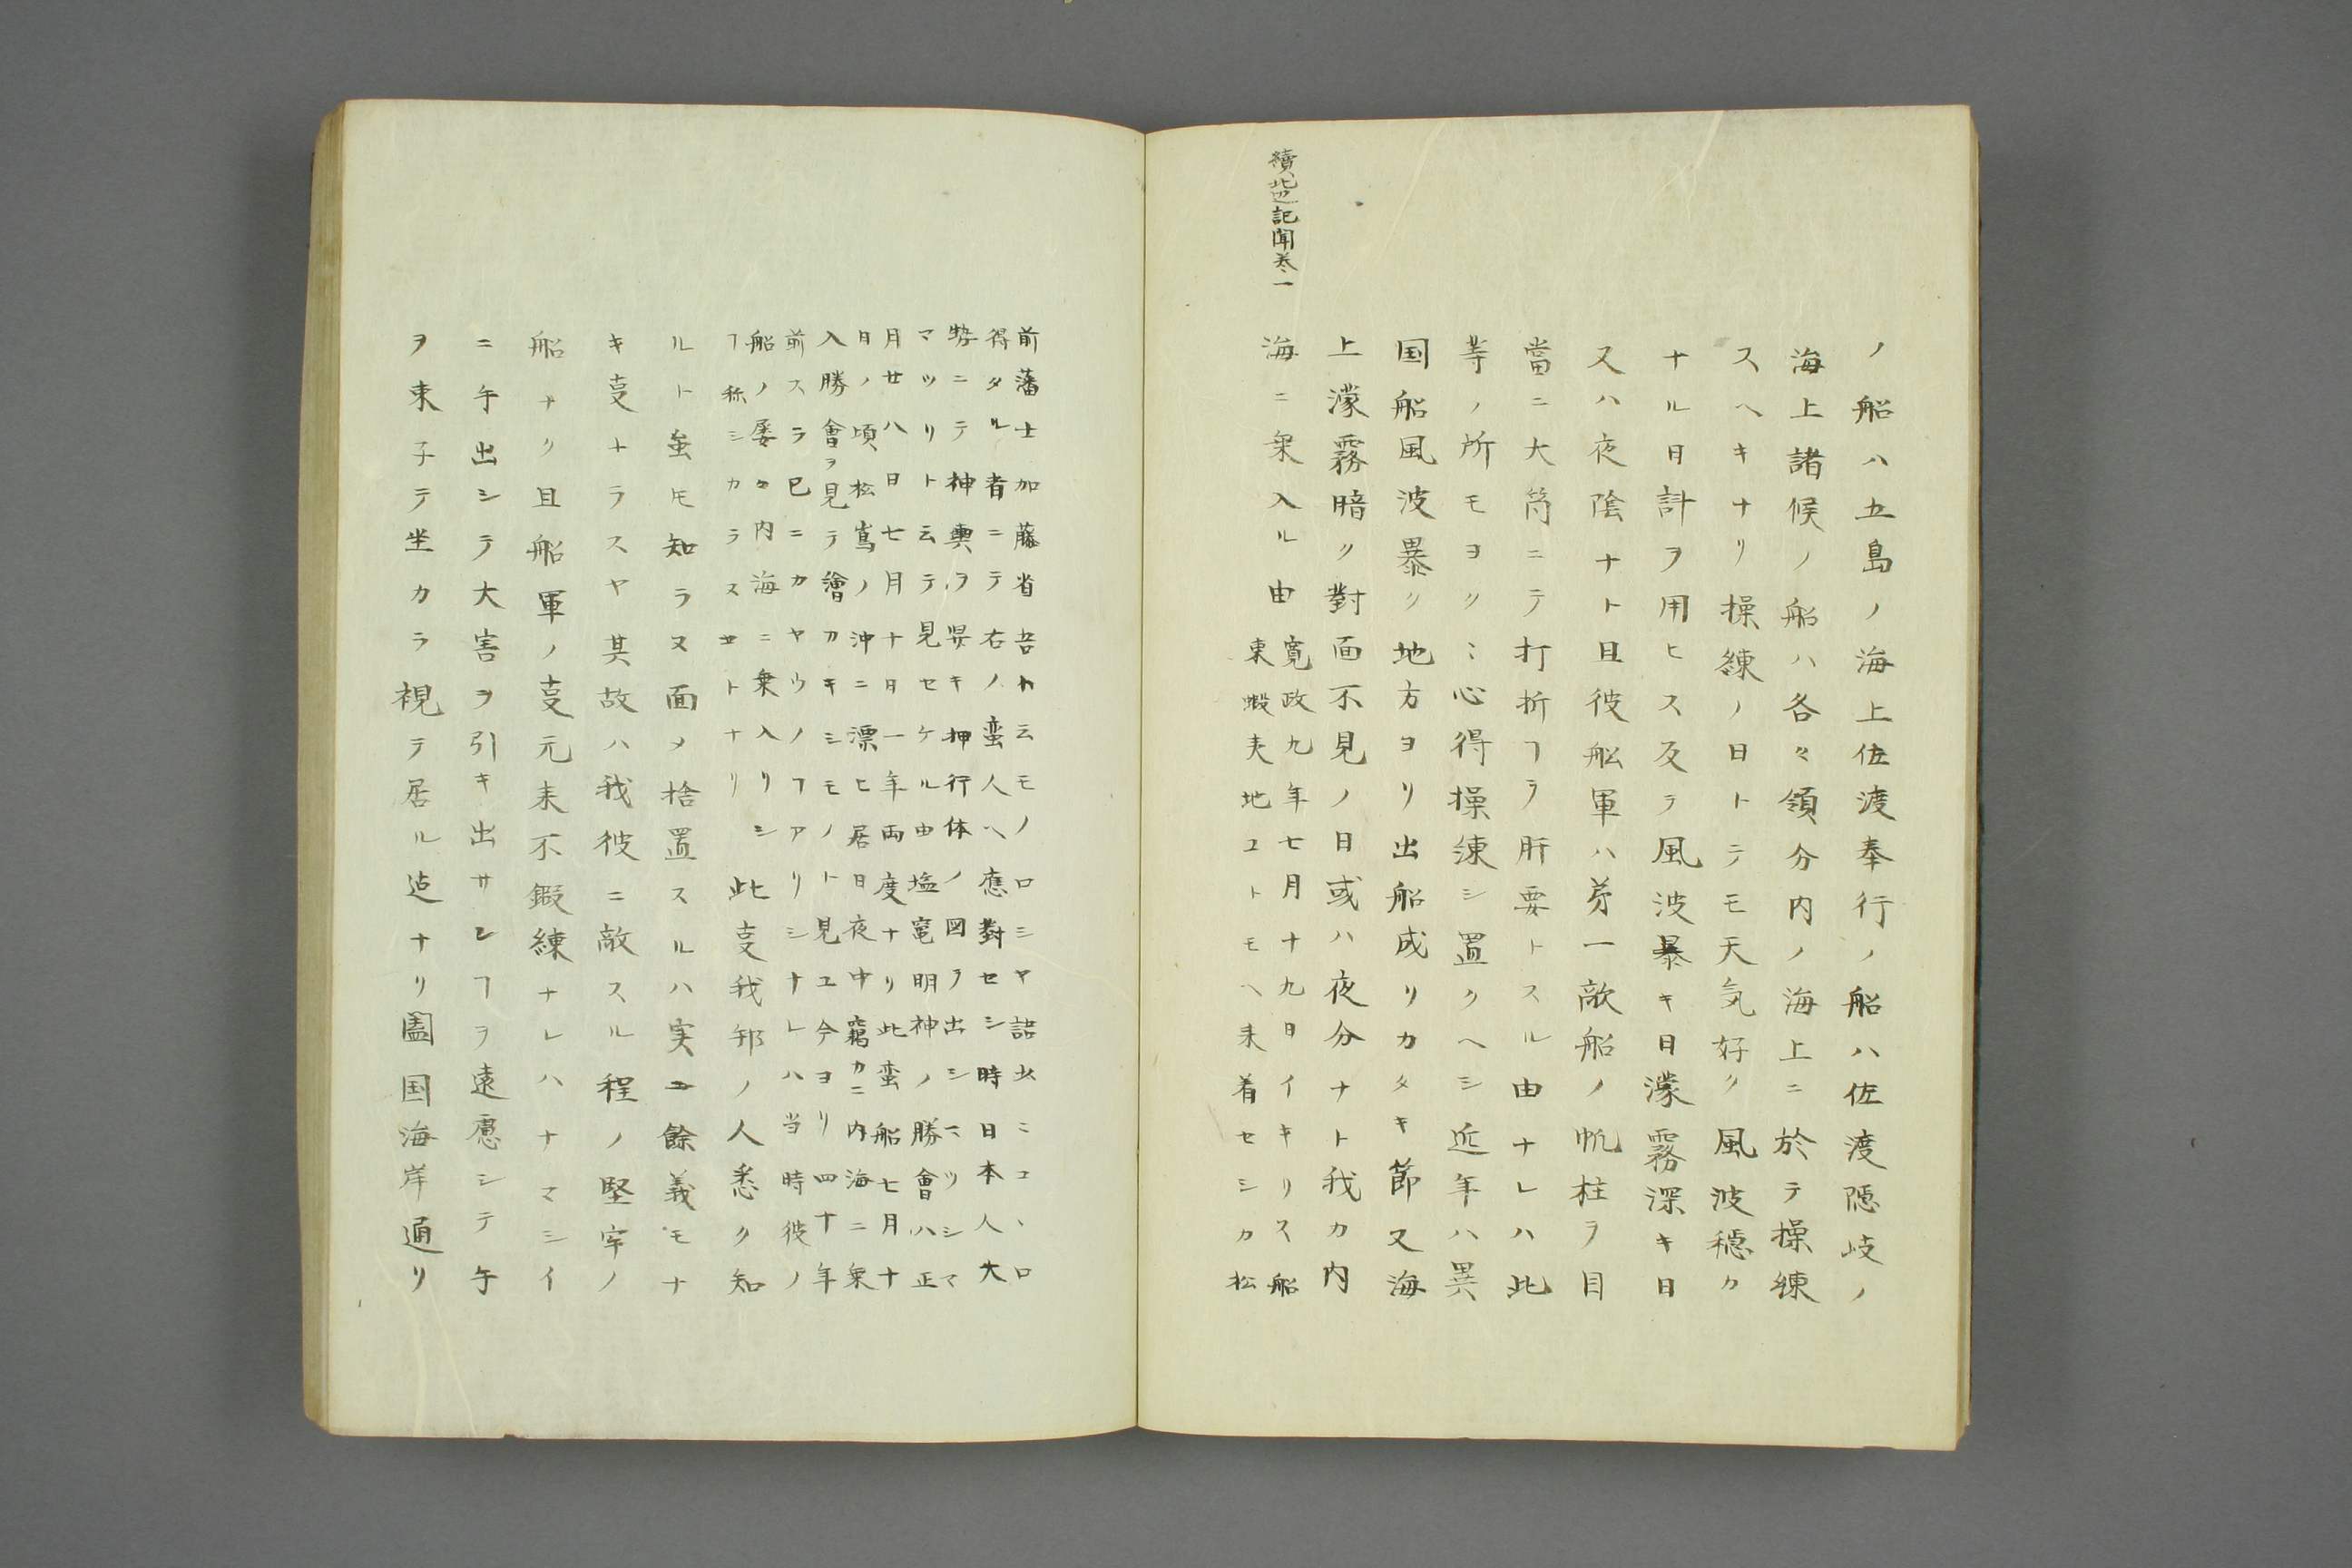 續北邊記聞卷一
ノ船ハ五島ノ海上佐渡奉行ノ船ハ佐渡隠岐ノ
海上諸候ノ船ハ各々領分内ノ海上ニ於テ操練
スヘキナリ操練ノ日トテモ天気好ク風波穏カ
ナル日計ヲ用ヒス反テ風波暴キ日濛霧深キ日
又ハ夜陰ナト且彼船軍ハ第一敵船ノ帆柱ヲ目
當ニ大筒ニテ打折ヿヲ肝要トスル由ナレハ此
等ノ所モヨク〻心得操練シ置クヘシ近年ハ異
国船風波暴ク地方ヨリ出船成リカタキ節又海
上濛霧暗ク對面不見ノ日或ハ夜分ナト我カ内
海ニ乗入ル由
寛政九年七月十九日イキリス船
東蝦夷地ヱトモヘ来着セシカ松
前藩士加藤省吾ト云モノロシヤ語少〻コヽロ
得タル者ニテ右ノ蛮人ヘ應對セシ時日本人大
勢ニテ神輿ヲ舁キ押行体ノ図ヲ出シマツシマ
マツリト云テ見セケル由塩竃明神ノ勝會ハ正
月廿八日七月十日一年両度ナリ此蛮船七月十
日ノ頃松嶌ノ沖ニ漂ヒ居日夜中竊カニ内海ニ乗
入勝會ヲ見テ繪カキシモノト見ユ今ヨリ四十年
前スラ已ニカヤウノヿアリシナレハ当時彼ノ
船ノ屡々内海ニ乗入リシ
ヿ称シカラス丗トナリ
此叓我邦ノ人悉ク知
ルト虽モ知ラヌ面メ捨置スルハ実ニ餘義モナ
キ叓ナラスヤ其故ハ我彼ニ敵スル程ノ堅牢ノ
船ナク且船軍ノ叓元来不鍜練ナレハナマシイ
ニ手出シテ大害ヲ引キ出サンヿヲ遠慮シテ手
ヲ束子テ坐カラ視テ居ル迠ナリ圖国海岸通リ